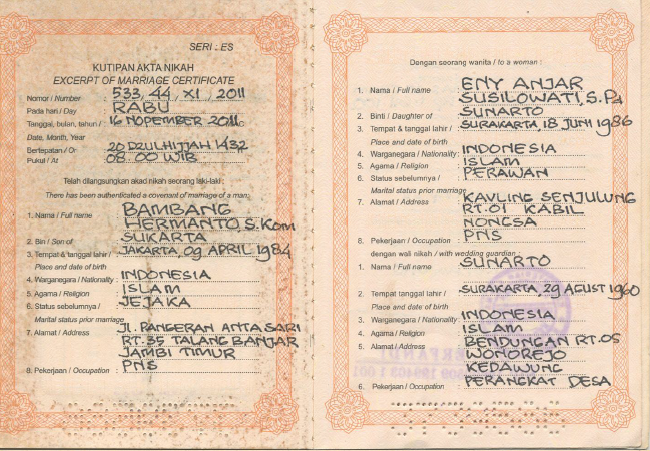 SERI : ES
KUTIPAN AKTA NIKAH
EXCERPT OF MARRIAGE CERTIFICATE
Nomor / Number : 533, 44, XI, 2011
Pada hari / Day : RABU
Tanggal, bulan, tahun : 16 NOPEMBER 2011
Date, Month, Year
Bertepatan / Or : 20 DZULHIJJAH 1432
Pukul / At : 08.00 WIB
Telah dilangsungkan akad nikah seorang laki-laki :
There has been authenticated a covenant of marriage of a man:
1. Nama / Full name : BAMBANG
HERMANTO, S.Kom
2. Bin / Son of : SUKARTA
3. Tempat & tanggal lahir / : JAKARTA, 09 APRIL 1984
Place and date of birth
4. Warganegara / Nationality : INDONESIA
5. Agama / Religion : ISLAM
6. Status sebelumnya / : JEJAKA
Marital status prior marriage
7. Alamat / Address : Jl. PANGERAN ANTASARI
RT.35 TALANG BANJAR
JAMBI TIMUR
8. Pekerjaan / Occupation : PNS
Dengan seorang wanita / to a woman :
1. Nama / Full name : ENY ANJAR
SUSILOWATI, S.Pd
2. Binti / Daughter of : SUNARTO
3. Tempat & tanggal lahir / : SURAKARTA, 18 JUNI 1986
Place and date of birth
4. Warganegara / Nationality : INDONESIA
5. Agama / Religion : ISLAM
6. Status sebelumnya / : PERAWAN
Marital status prior marriage
7. Alamat / Address : KAVLING SENJULUNG
RT.01 KABIL
NONGSA
8. Pekerjaan / Occupation : PNS
dengan wali nikah / with wedding guardian :
1. Nama / Full name : SUNARTO
2. Tempat tanggal lahir / : SURAKARTA, 29 AGUST 1960
Place and date of birth
3. Warganegara / Nationality : INDONESIA
4. Agama / Religion : ISLAM
5. Alamat / Address : BENDUNGAN RT.05
WONOREJO
KEDAWUNG
6. Pekerjaan / Occupation : PERANGKAT DESA